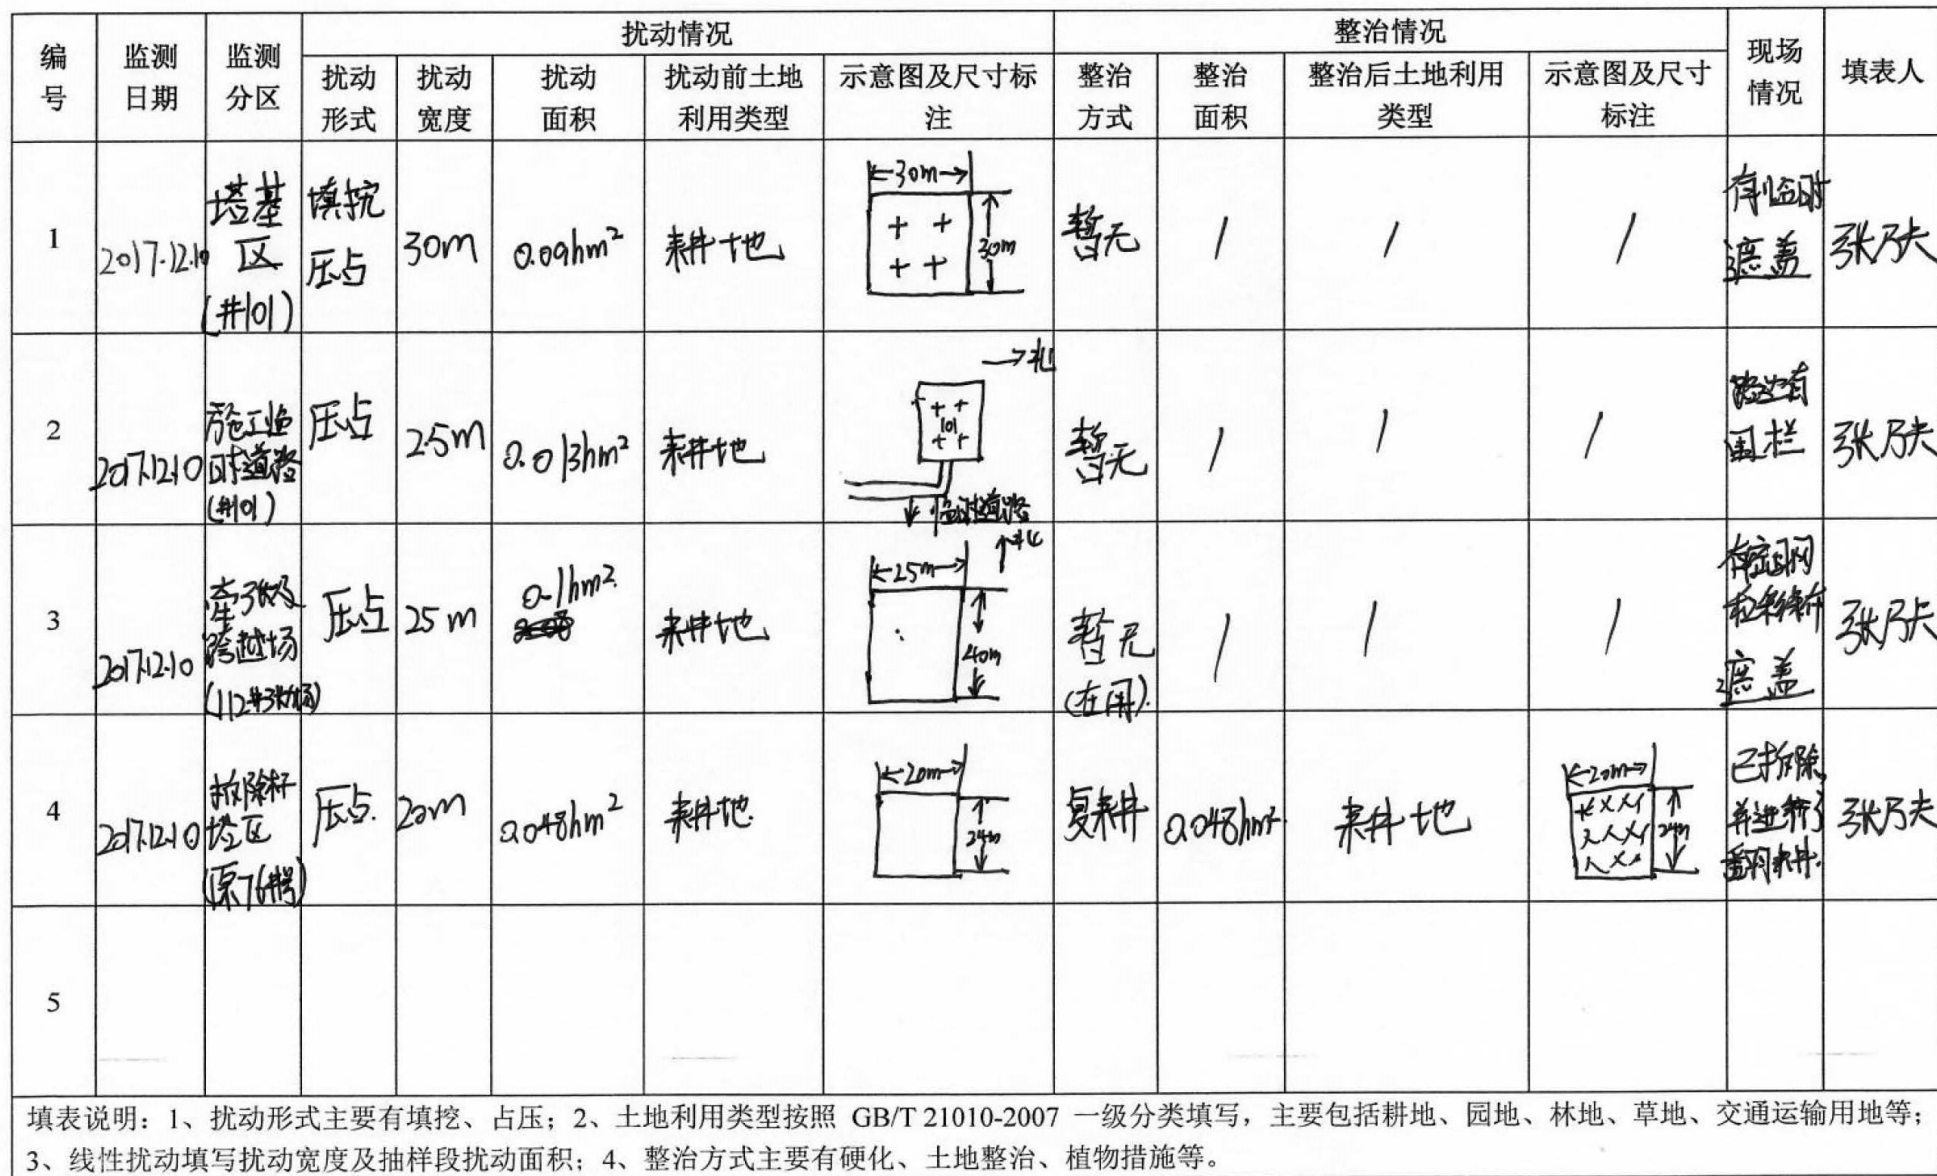 编号 监测日期 监测分区 扰动情况 整治情况 现场情况 填表人
扰动形式 扰动宽度 扰动面积 扰动前土地利用类型 示意图及尺寸标注 整治方式 整治面积 整治后土地利用类型 示意图及尺寸标注
1 2017.12.10 塔基区(#101) 填挖压占 30m 0.09hm² 耕地 30m 30m 暂无 / / / 有临时遮盖 张乃夫
2 2017.12.10 施工临时道路(#101) 压占 2.5m 0.013hm² 耕地 →北 101 临时道路 暂无 / / / 路边有围栏 张乃夫
3 2017.12.10 牵张及跨越场(112#张力场) 压占 25m 0.1hm² 耕地 25m 40m ↑北 暂无(在用). / / / 有密目网和彩条布遮盖 张乃夫
4 2017.12.10 拆除杆塔区(原76#塔) 压占. 20m 0.048hm² 耕地. 20m 24m 复耕 0.048hm². 耕地 20m 24m 已拆除,并进行了翻耕. 张乃夫
5
填表说明：1、扰动形式主要有填挖、占压；2、土地利用类型按照 GB/T 21010-2007 一级分类填写，主要包括耕地、园地、林地、草地、交通运输用地等；
3、线性扰动填写扰动宽度及抽样段扰动面积；4、整治方式主要有硬化、土地整治、植物措施等。